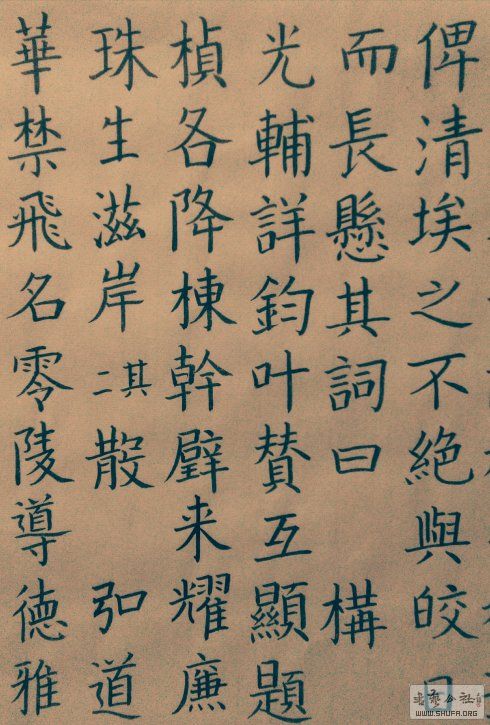 俾清埃之不絕與皎日
而長懸其詞曰 構
光輔詳鈞叶賛互顯題
楨各降棟幹璧来耀廡
珠生滋岸 其二 散 弘道
華禁飛名零陵導德雅
书艺公社
WWW.SHUFA.ORG